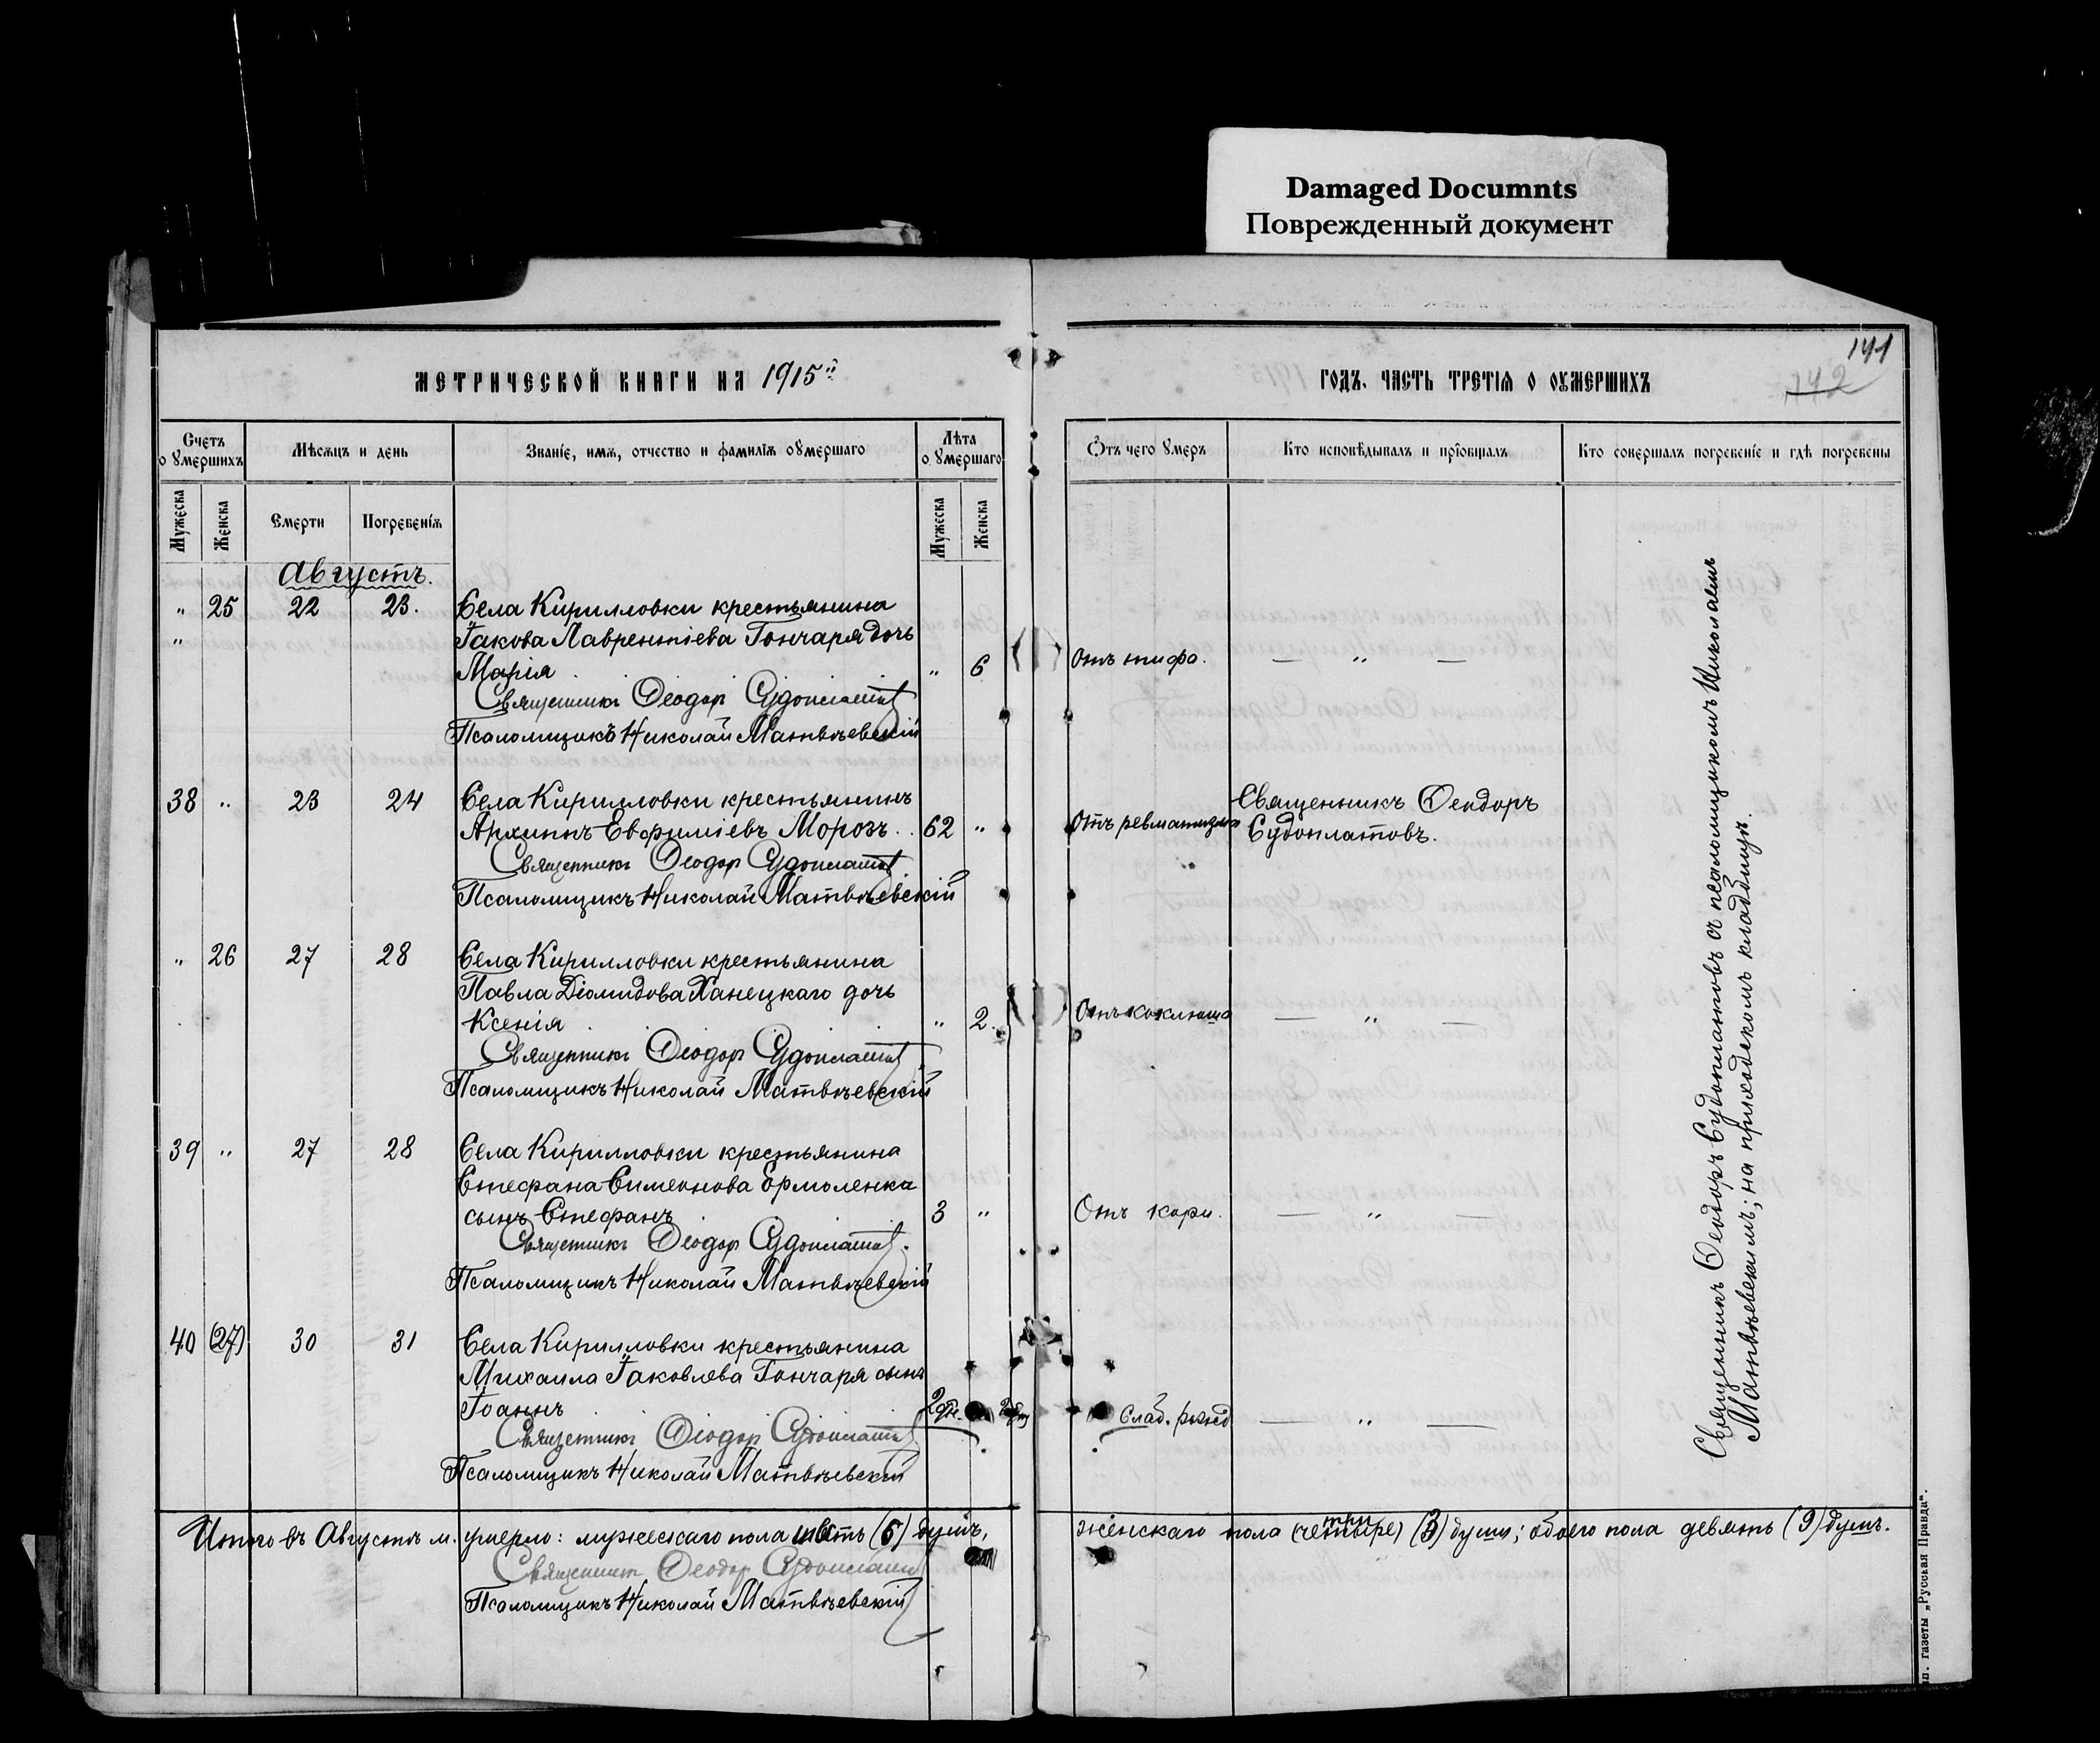 Damaged Documnts
Поврежденный документ
141
142
МЕТРИЧЕСКОЙ КНИГИ НА 1915й
ГОДЪ. ЧАСТЬ ТРЕТІЯ О ОУМЕРШИХЪ
Счетъ о умершихъ
Мѣсяцъ и день
Званіе, имя, отчество и фамилія оумершаго
Лѣта о умершаго
Отъ чего умеръ
Кто исповѣдывалъ и пріобщалъ
Кто совершалъ погребеніе и гдѣ погребены
Мужеска
Женска
Смерти
Погребенія
Мужеска
Женска
Августъ.
" 25 22 23. Села Кирилловки крестьянина
" Іакова Лаврентіева Гончаря дочь
Марія " 6 Отъ тифа. — " —
Священникъ Ѳеодор Судоплатов
Псаломщикъ Николай Матвѣевскій
38 " 23 24 Села Кирилловки крестьянинъ
Архиппъ Евфиміевъ Морозъ. 62 " Отъ ревматизма
Священникъ Ѳеодоръ
Судоплатовъ.
Священникъ Ѳеодор Судоплатов
Псаломщикъ Николай Матвѣевскій
" 26 27 28 Села Кирилловки крестьянина
Павла Діомидова Ханецкаго дочь
Ксенія " 2. Отъ коклюша — " —
Священникъ Ѳеодор Судоплатов
Псаломщикъ Николай Матвѣевскій
39 " 27 28 Села Кирилловки крестьянина
Стефана Симеонова Ермоленка
сынъ Стефанъ 3 " Отъ кори. — " —
Священникъ Ѳеодор Судоплатов.
Псаломщикъ Николай Матвѣевскій
40 (27) 30 31 Села Кирилловки крестьянина
Михаила Іаковлева Гончаря сынъ
Іоаннъ 2 дн. Слаб. рожд — " —
Священникъ Ѳеодор Судоплатов
Псаломщикъ Николай Матвѣевскій
Священникъ Ѳеодоръ Судоплатовъ съ псаломщикомъ Николаемъ
Матвѣевскимъ; на приходскомъ кладбищѣ.
Итого въ Августѣ м. умерло: мужескаго пола шесть (6) душъ, женскаго пола (четыре) три (3) души; обоего пола девять (9) душъ.
Священникъ Ѳеодор Судоплатов
Псаломщикъ Николай Матвѣевскій
п. газеты „Русская Правда“.